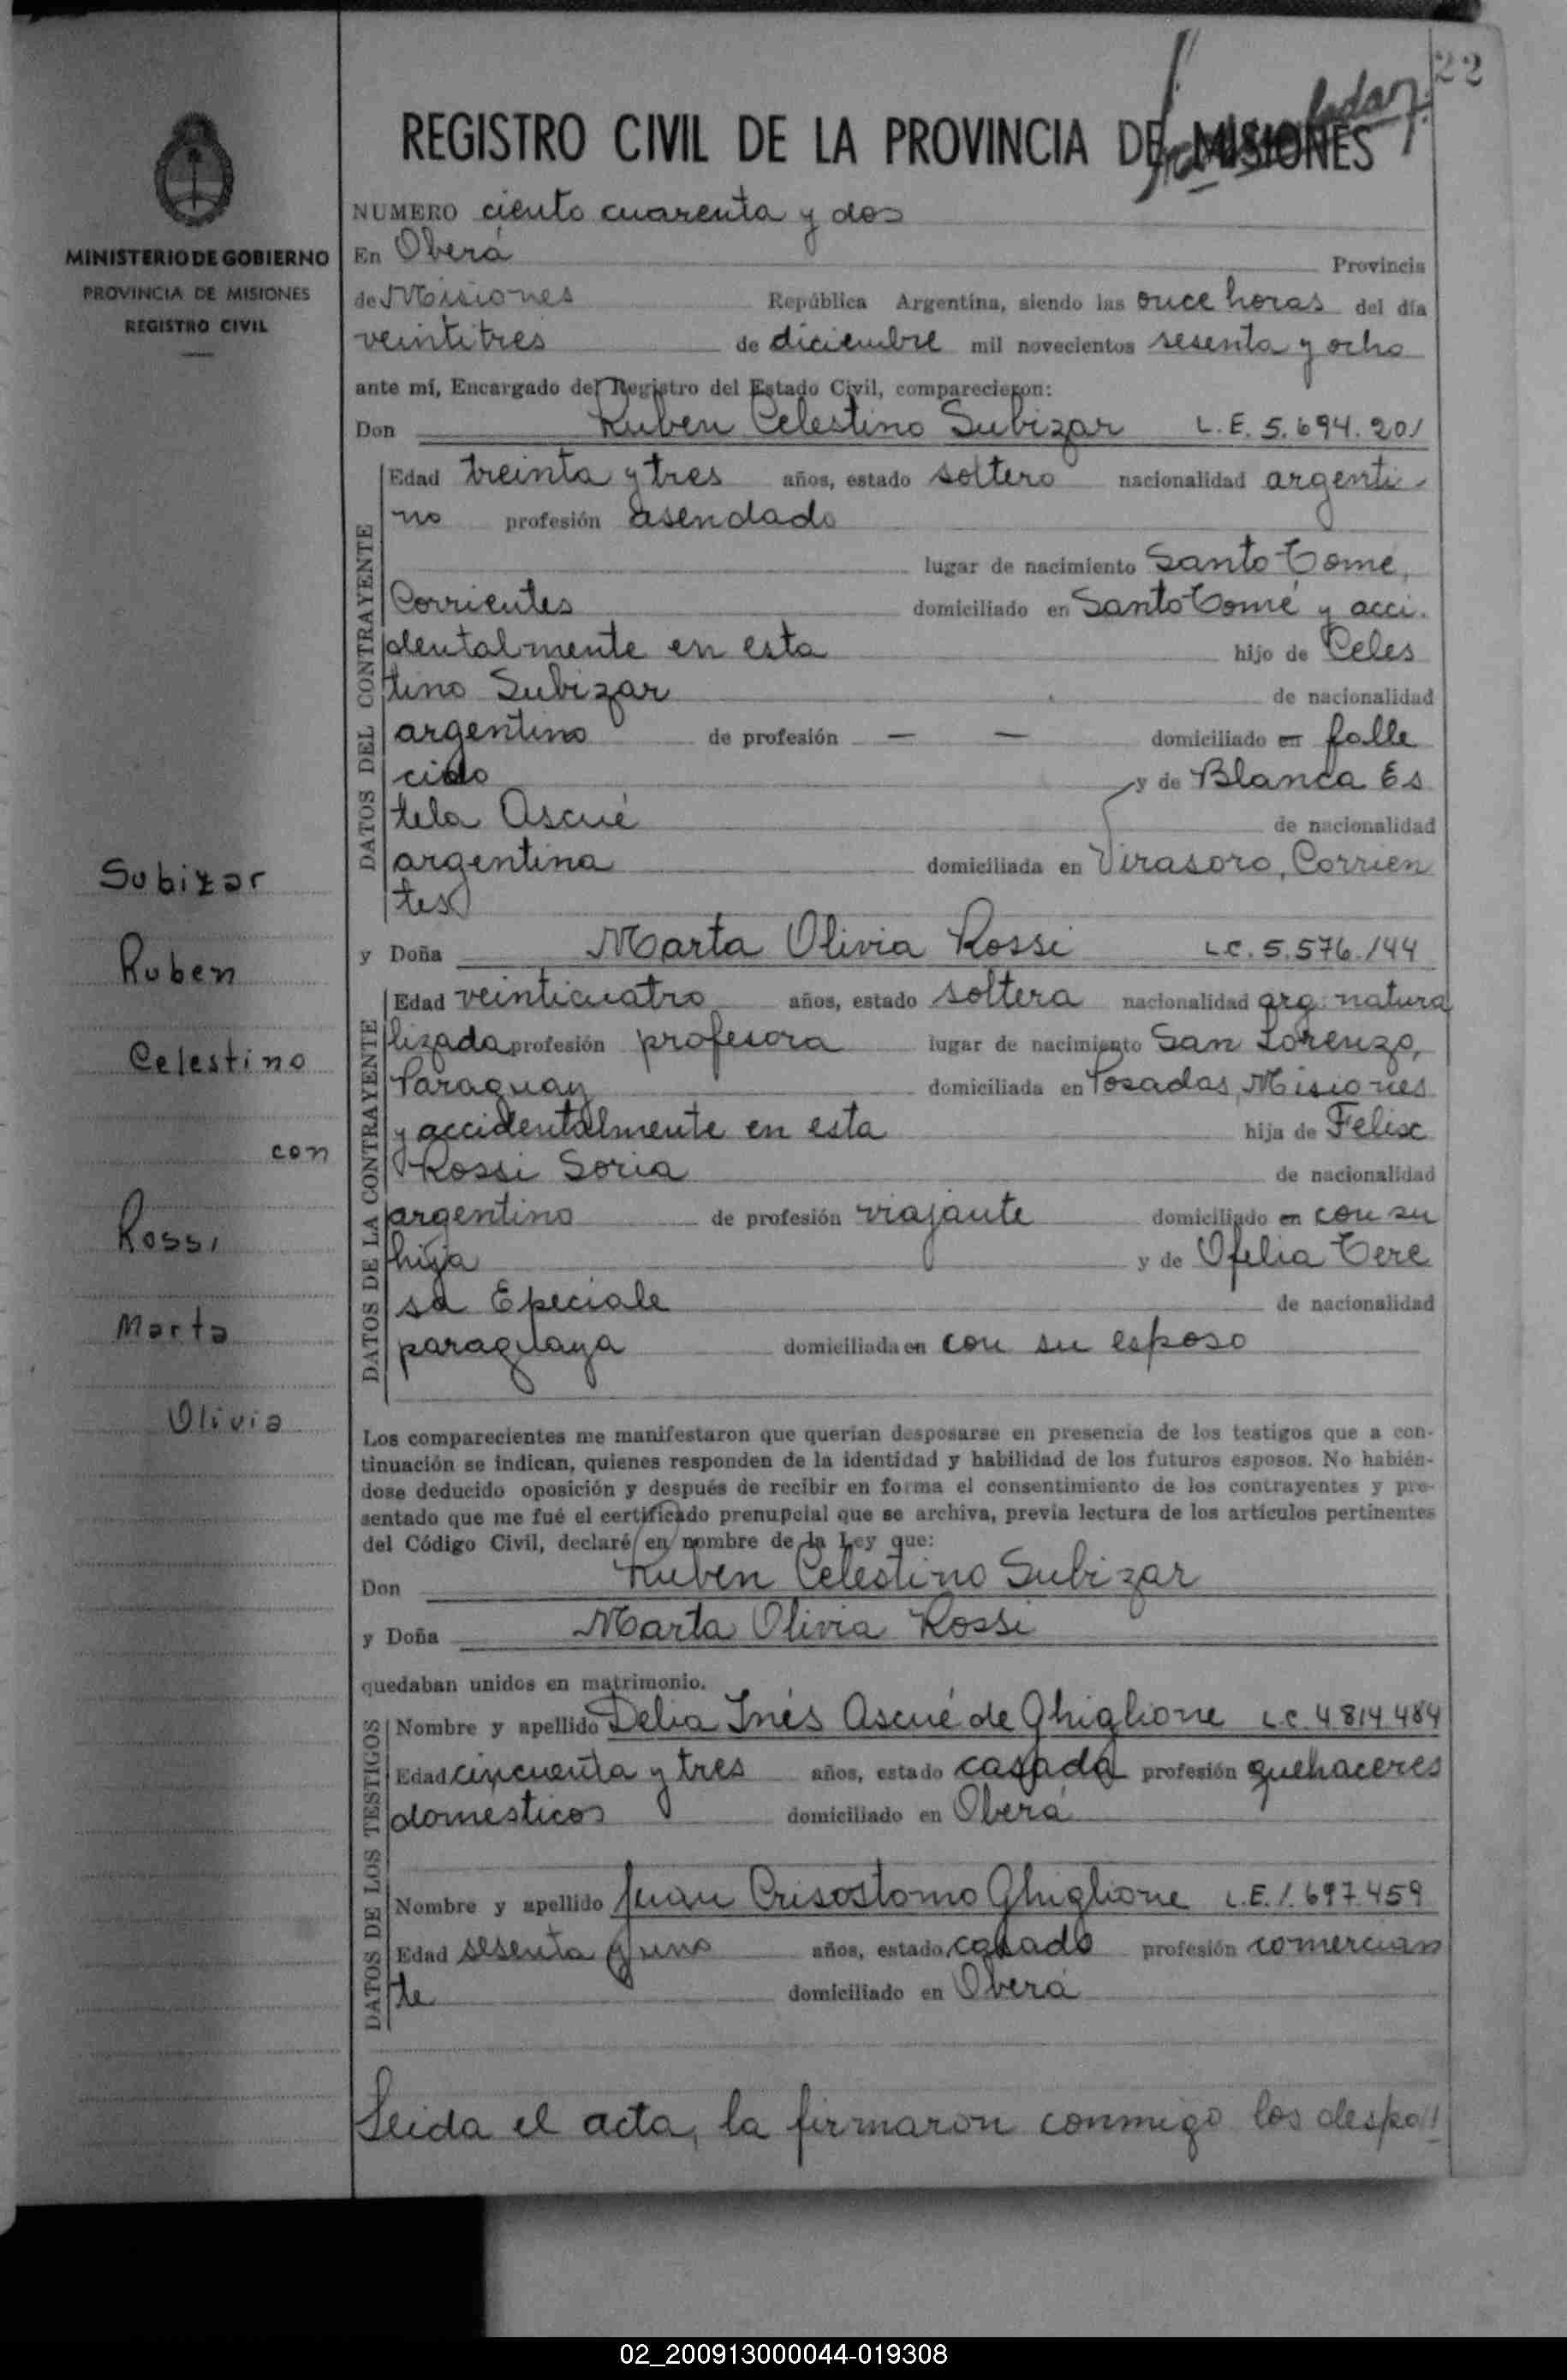 22
REGISTRO CIVIL DE LA PROVINCIA DE MISIONES
MINISTERIO DE GOBIERNO
PROVINCIA DE MISIONES
REGISTRO CIVIL
Subizar
Ruben
Celestino
con
Rossi
Marta
Olivia
NUMERO ciento cuarenta y dos
En Oberá Provincia
de Misiones República Argentina, siendo las once horas del día
veintitres de diciembre mil novecientos sesenta y ocho
ante mí, Encargado del Registro del Estado Civil, comparecieron:
Don Ruben Celestino Subizar L.E. 5.694.201
DATOS DEL CONTRAYENTE
Edad treinta y tres años, estado soltero nacionalidad argenti-
no profesión asendado
lugar de nacimiento Santo Tomé,
Corrientes domiciliado en Santo Tomé y acci-
dentalmente en esta hijo de Celes
tino Subizar de nacionalidad
argentino de profesión — — domiciliado en falle
cido y de Blanca Es
tela Ascué de nacionalidad
argentina domiciliada en Virasoro, Corrien
tes
y Doña Marta Olivia Rossi L.C. 5.576.144
DATOS DE LA CONTRAYENTE
Edad veinticuatro años, estado soltera nacionalidad arg. natura
lizada profesión profesora lugar de nacimiento San Lorenzo,
Paraguay domiciliada en Posadas, Misiones
y accidentalmente en esta hija de Felix
Rossi Soria de nacionalidad
argentino de profesión viajante domiciliado en con su
hija y de Ofelia Tere
sa Epeciale de nacionalidad
paraguaya domiciliada en con su esposo
Los comparecientes me manifestaron que querían desposarse en presencia de los testigos que a con-
tinuación se indican, quienes responden de la identidad y habilidad de los futuros esposos. No habién-
dose deducido oposición y después de recibir en forma el consentimiento de los contrayentes y pre-
sentado que me fué el certificado prenupcial que se archiva, previa lectura de los artículos pertinentes
del Código Civil, declaré en nombre de la Ley que:
Don Ruben Celestino Subizar
y Doña Marta Olivia Rossi
quedaban unidos en matrimonio.
DATOS DE LOS TESTIGOS
Nombre y apellido Delia Inés Ascué de Ghiglione L.C. 4.814.484
Edad cincuenta y tres años, estado casada profesión quehaceres
domesticos domiciliado en Oberá
Nombre y apellido Juan Crisostomo Ghiglione L.E. 1.697.459
Edad sesenta y uno años, estado casado profesión comercian
te domiciliado en Oberá
Leida el acta, la firmaron conmigo los despo//
02_200913000044-019308